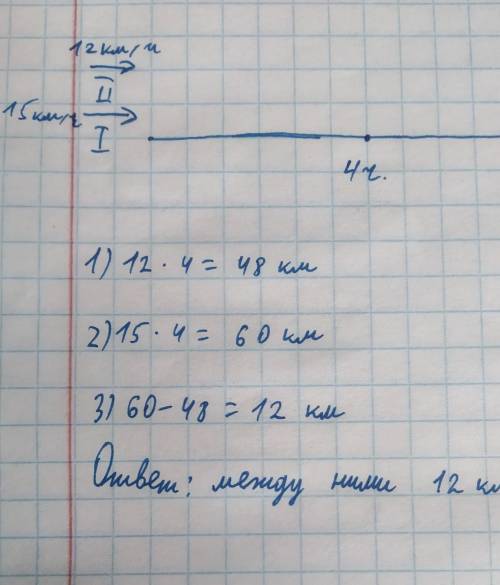 12км/ч
II
15км/ч
I
4ч.
1) 12 · 4 = 48 км
2) 15 · 4 = 60 км
3) 60 - 48 = 12 км
Ответ: между ними 12 км